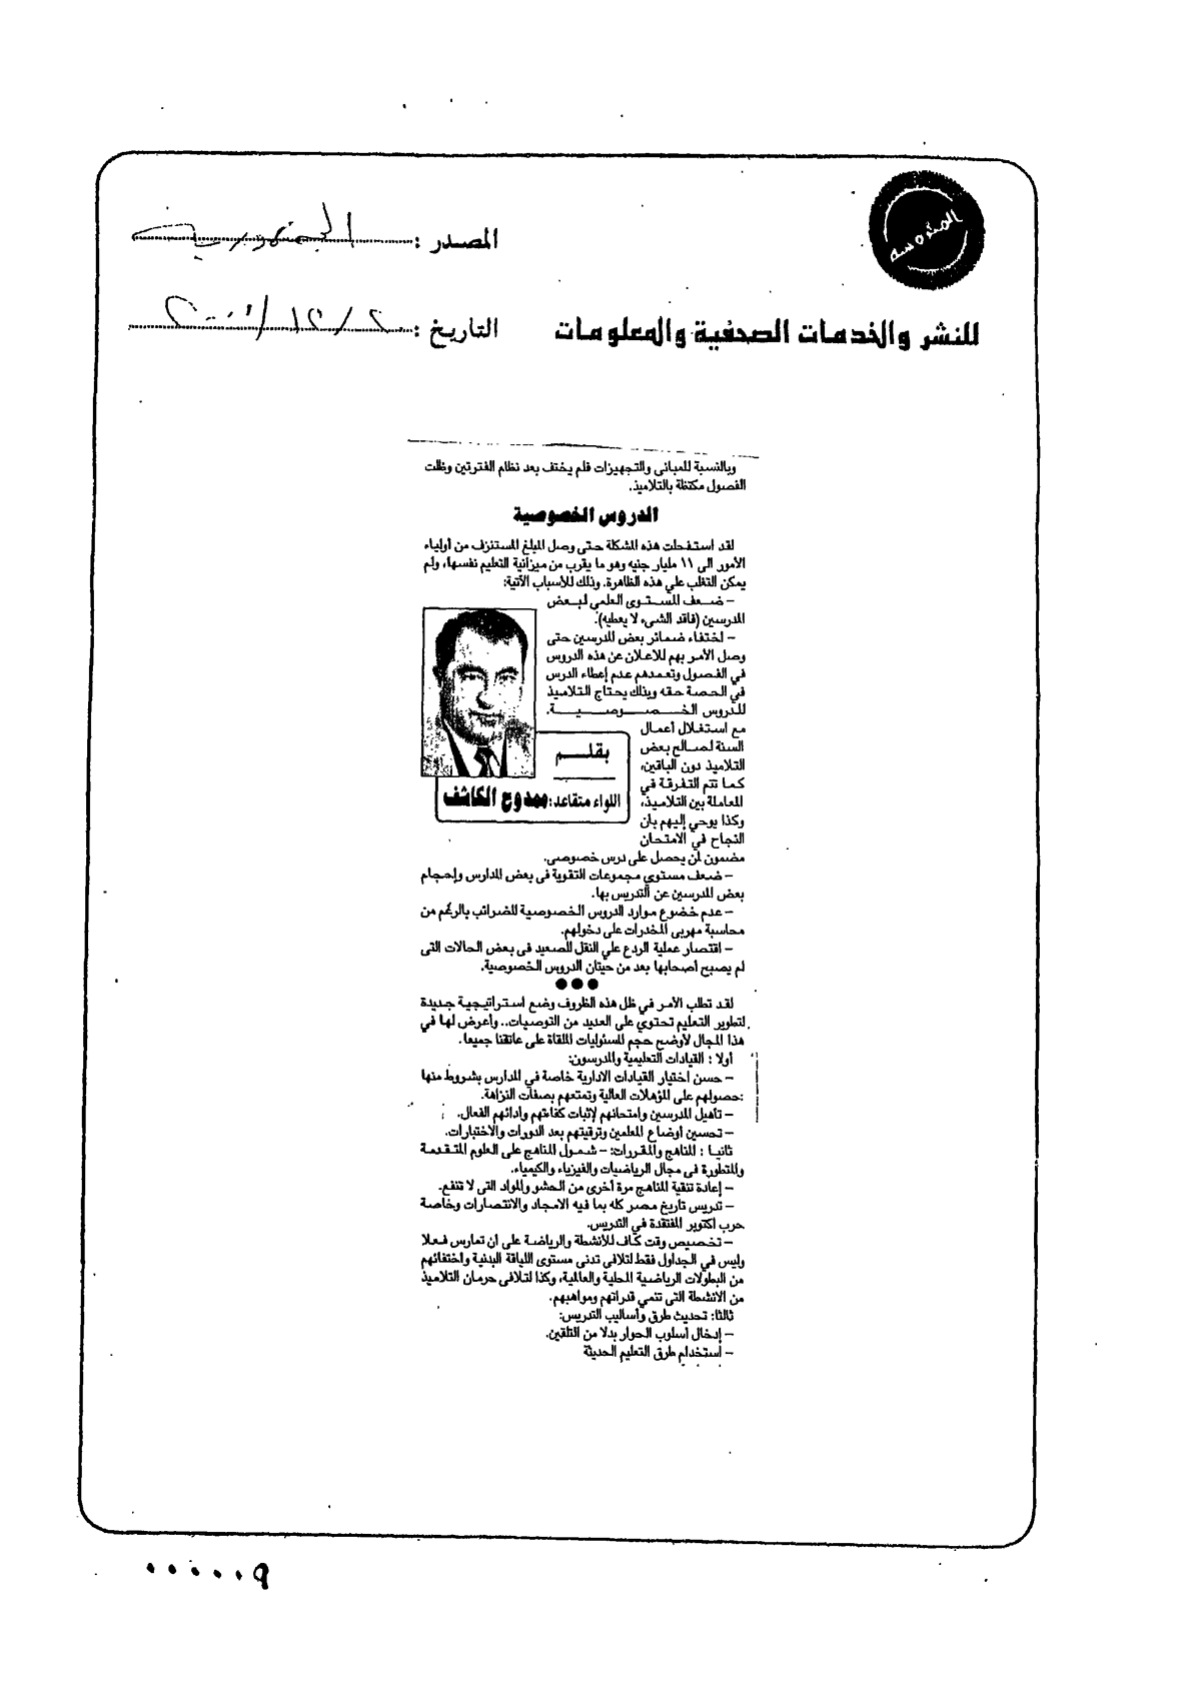 المحروسة
للنشر والخدمات الصحفية والمعلومات
المصدر : الجمهورية
التاريخ : ٢ / ١٢ /
وبالنسبة للمبانى والتجهيزات فلم يختف بعد نظام الفترتين وظلت
الفصول مكتظة بالتلاميذ.
الدروس الخصوصية
لقد استفحلت هذه المشكلة حتى وصل المبلغ المستنزف من أولياء
الأمور الى ١١ مليار جنيه وهو ما يقرب من ميزانية التعليم نفسها، ولم
يمكن التغلب علي هذه الظاهرة. وذلك للأسباب الآتية:
– ضعف المستوى العلمى لبعض
المدرسين (فاقد الشىء لا يعطيه).
– اختفاء ضمائر بعض المدرسين حتى
وصل الأمر بهم للاعلان عن هذه الدروس
في الفصول وتعمدهم عدم إعطاء الدرس
في الحصة حقه وبذلك يحتاج التلاميذ
للدروس الخصوصية.
مع استغلال أعمال
السنة لصالح بعض
التلاميذ دون الباقين،
كما تتم التفرقة في
المعاملة بين التلاميذ،
وكذا يوحي إليهم بان
النجاح في الامتحان
مضمون لمن يحصل على درس خصوصى.
بقلم
اللواء متقاعد: ممدوح الكاشف
– ضعف مستوي مجموعات التقوية فى بعض المدارس وإحجام
بعض المدرسين عن التدريس بها.
– عدم خضوع موارد الدروس الخصوصية للضرائب بالرغم من
محاسبة مهربى المخدرات على دخولهم.
– اقتصار عملية الردع علي النقل للصعيد فى بعض الحالات التى
لم يصبح أصحابها بعد من حيتان الدروس الخصوصية.
●●●
لقد تطلب الأمر في ظل هذه الظروف وضع استراتيجية جديدة
لتطوير التعليم تحتوي على العديد من التوصيات.. وأعرض لها في
هذا المجال لأوضح حجم المسئوليات الملقاة على عاتقنا جميعا.
أولا : القيادات التعليمية والمدرسون:
– حسن اختيار القيادات الادارية خاصة في المدارس بشروط منها
حصولهم على المؤهلات العالية وتمتعهم بصفات النزاهة.
– تأهيل المدرسين وامتحانهم لإثبات كفاءتهم وادائهم الفعال.
– تحسين أوضاع المعلمين وترقيتهم بعد الدورات والاختبارات.
ثانيا : المناهج والمقررات: – شمول المناهج على العلوم المتقدمة
والمتطورة فى مجال الرياضيات والفيزياء والكيمياء.
– إعادة تنقية المناهج مرة أخرى من الحشو والمواد التى لا تنفع.
– تدريس تاريخ مصر كله بما فيه الامجاد والانتصارات وخاصة
حرب اكتوبر المفتقدة في التدريس.
– تخصيص وقت كاف للأنشطة والرياضة على ان تمارس فعلا
وليس في الجداول فقط لتلافى تدنى مستوى اللياقة البدنية واختفائهم
من البطولات الرياضية المحلية والعالمية، وكذا لتلافى حرمان التلاميذ
من الانشطة التى تنمي قدراتهم ومواهبهم.
ثالثا: تحديث طرق وأساليب التدريس:
– إدخال أسلوب الحوار بدلا من التلقين.
– استخدام طرق التعليم الحديثة
٠٠٠٠٠٩